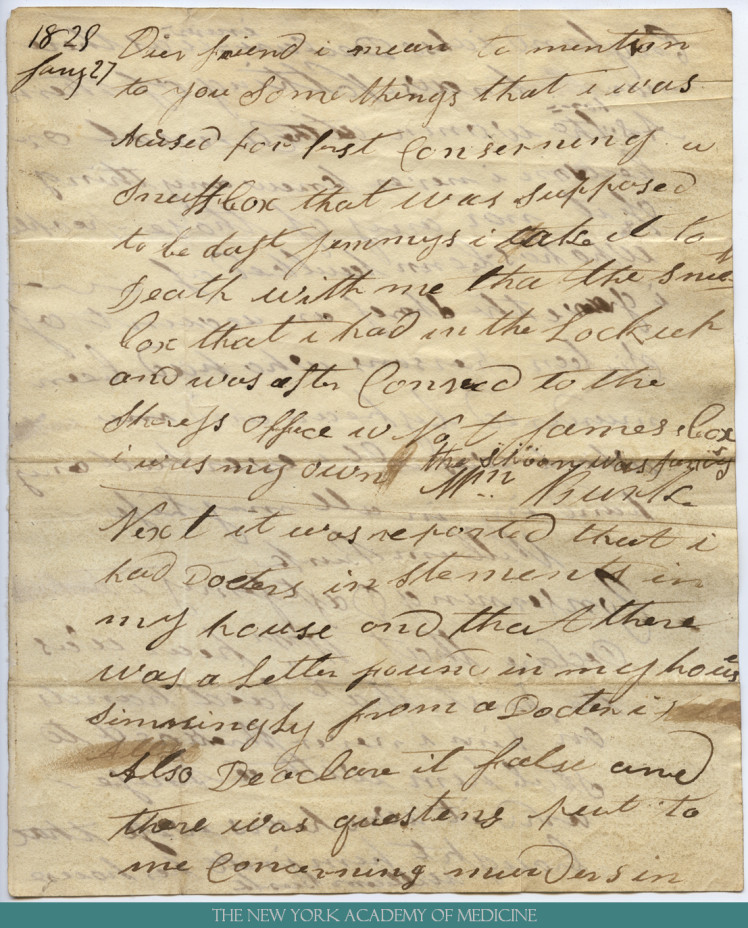 1829
Jany 27
Dier friend i mean to mention
to you Some things that i was
Acused for first Conserning a
Snuffbox that was Supposed
to be daft Jimmys i take it to
Death with me that the Snuf
box that i had in the Lockup
and was after Conved to the
Sherefs Office w Not James s box
i was my own the Spoon was Jamis
Wm Burk
Next it was reported that i
had Docters instements in
my house and that there
was a Letter foun in my hous
simmingly from a Docter i
Also Deaclare it false and
there was questens put to
me Concerning murders in
THE NEW YORK ACADEMY OF MEDICINE